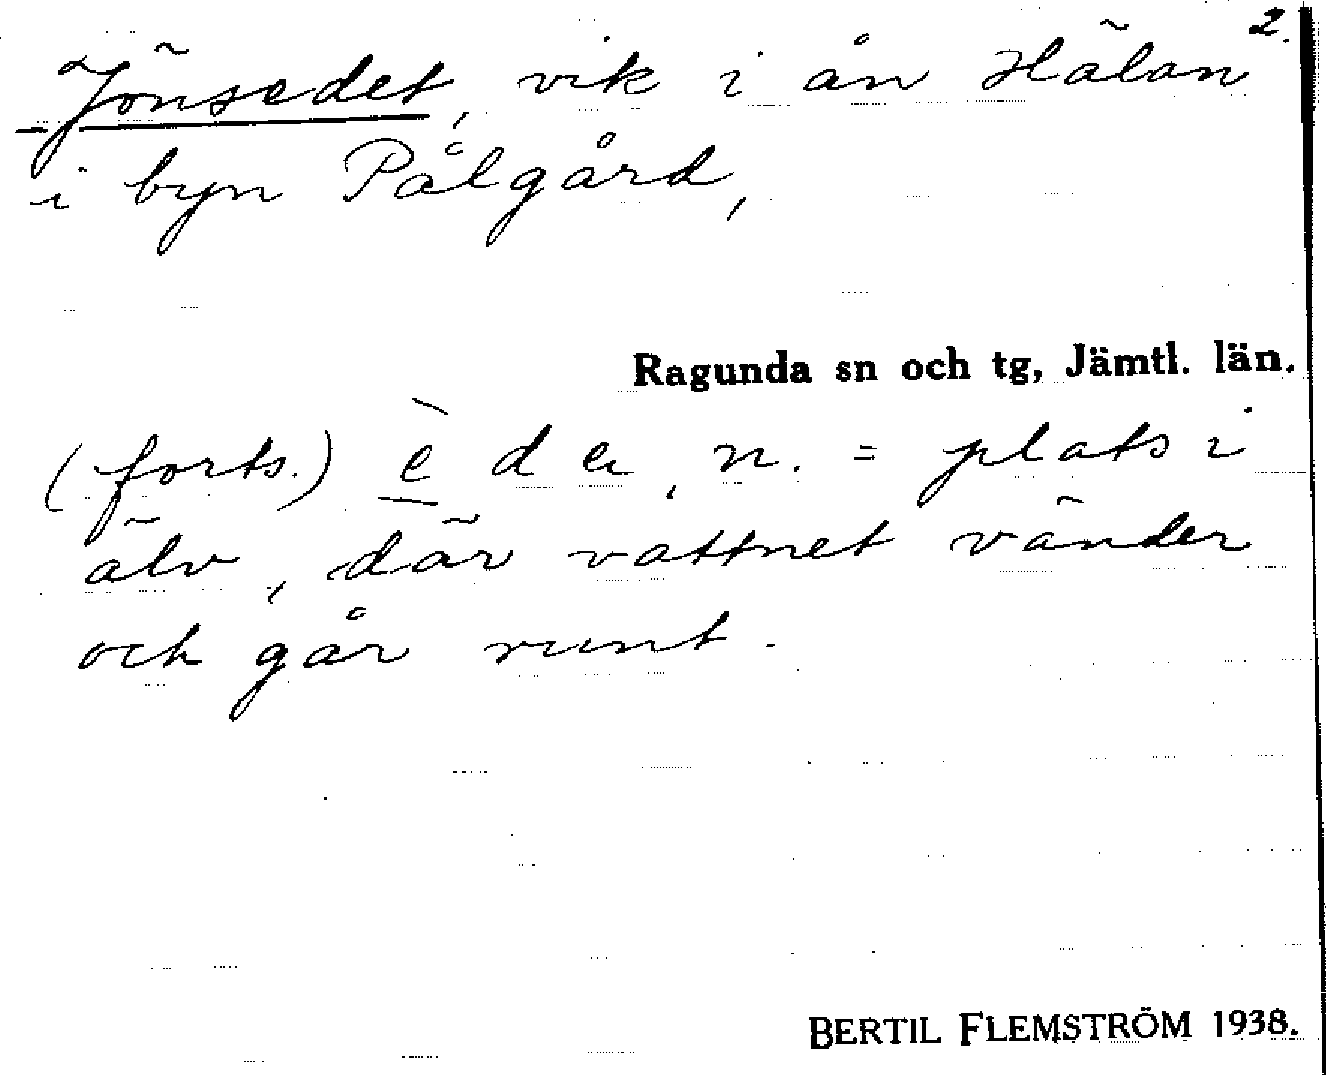 2.
Jönsedet, vik i ån Hälan
i byn Pålgård,
Ragunda sn och tg, Jämtl. län.
(forts.) è de, n. = plats i
älv, där vattnet vänder
och går runt.
BERTIL FLEMSTRÖM 1938.